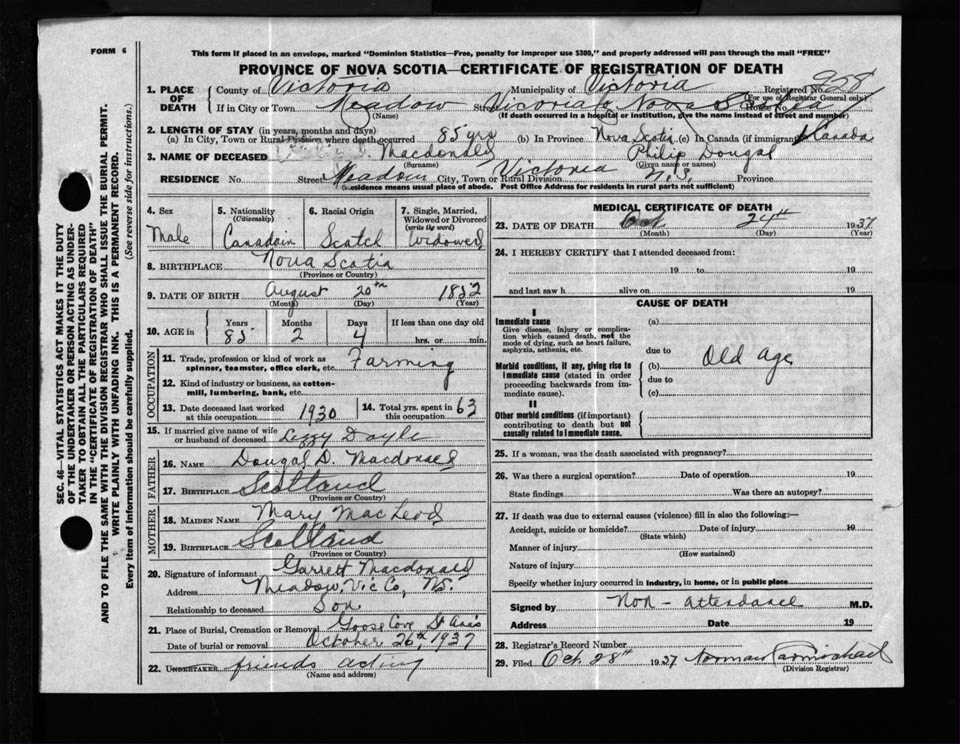 FORM 6
This form if placed in an envelope, marked "Dominion Statistics—Free, penalty for improper use $300," and properly addressed will pass through the mail "FREE"
PROVINCE OF NOVA SCOTIA—CERTIFICATE OF REGISTRATION OF DEATH
1. PLACE OF DEATH County of Victoria Municipality of Victoria Registered No. 958
(For use of Registrar General only)
If in City or Town Meadow Street Victoria Co Nova Scotia House No.
(Name) (If death occurred in a hospital or institution, give the name instead of street and number)
2. LENGTH OF STAY (in years, months and days)
(a) In City, Town or Rural Division where death occurred 85 yrs (b) In Province Nova Scotia (c) In Canada (if immigrant) Canada
3. NAME OF DECEASED Macdonald Philip Dougal
(Surname) (Given name or names)
RESIDENCE No. Street Meadow City, Town or Rural Division Victoria N.S. Province
(Residence means usual place of abode. Post Office Address for residents in rural parts not sufficient)
4. Sex
Male
5. Nationality
(Citizenship)
Canadain
6. Racial Origin
Scotch
7. Single, Married, Widowed or Divorced
(write the word)
Widowed
8. BIRTHPLACE Nova Scotia
(Province or Country)
9. DATE OF BIRTH August 20th 1852
(Month) (Day) (Year)
10. AGE in Years Months Days If less than one day old
85 2 4 hrs. or min.
OCCUPATION
11. Trade, profession or kind of work as spinner, teamster, office clerk, etc. Farming
12. Kind of industry or business, as cotton-mill, lumbering, bank, etc.
13. Date deceased last worked at this occupation 1930
14. Total yrs. spent in this occupation 63
15. If married give name of wife or husband of deceased Lizzy Doyle
FATHER
16. NAME Dougal D. Macdonald
17. BIRTHPLACE Scotland
(Province or Country)
MOTHER
18. MAIDEN NAME Mary MacLeod
19. BIRTHPLACE Scotland
(Province or Country)
20. Signature of informant Garrett Macdonald
Address Meadow, Vic Co, N.S.
Relationship to deceased Son
21. Place of Burial, Cremation or Removal Goose Cove St Anns
Date of burial or removal October 26th, 1937
22. UNDERTAKER friends acting
(Name and address)
MEDICAL CERTIFICATE OF DEATH
23. DATE OF DEATH Oct 24th 1937
(Month) (Day) (Year)
24. I HEREBY CERTIFY that I attended deceased from:
19 to 19
and last saw h alive on 19
CAUSE OF DEATH
I
Immediate cause
Give disease, injury or complication which caused death, not the mode of dying, such as heart failure, asphyxia, asthenia, etc.
(a)
due to
Morbid conditions, if any, giving rise to immediate cause (stated in order proceeding backwards from immediate cause).
(b) Old Age
due to
(c)
II
Other morbid conditions (if important) contributing to death but not causally related to immediate cause.
25. If a woman, was the death associated with pregnancy?
26. Was there a surgical operation? Date of operation 19
State findings Was there an autopsy?
27. If death was due to external causes (violence) fill in also the following:—
Accident, suicide or homicide? Date of injury 19
(State which)
Manner of injury
(How sustained)
Nature of injury
Specify whether injury occurred in industry, in home, or in public place
Signed by Non-attendance M.D.
Address Date 19
28. Registrar's Record Number
29. Filed Oct. 28th 1937 Norman Carmichael
(Division Registrar)
SEC. 46—VITAL STATISTICS ACT MAKES IT THE DUTY
OF THE UNDERTAKER OR PERSON ACTING AS UNDER-
TAKER TO OBTAIN ALL THE PARTICULARS REQUIRED
IN THE "CERTIFICATE OF REGISTRATION OF DEATH"
AND TO FILE THE SAME WITH THE DIVISION REGISTRAR WHO SHALL ISSUE THE BURIAL PERMIT.
WRITE PLAINLY WITH UNFADING INK. THIS IS A PERMANENT RECORD.
Every item of information should be carefully supplied. (See reverse side for instructions.)